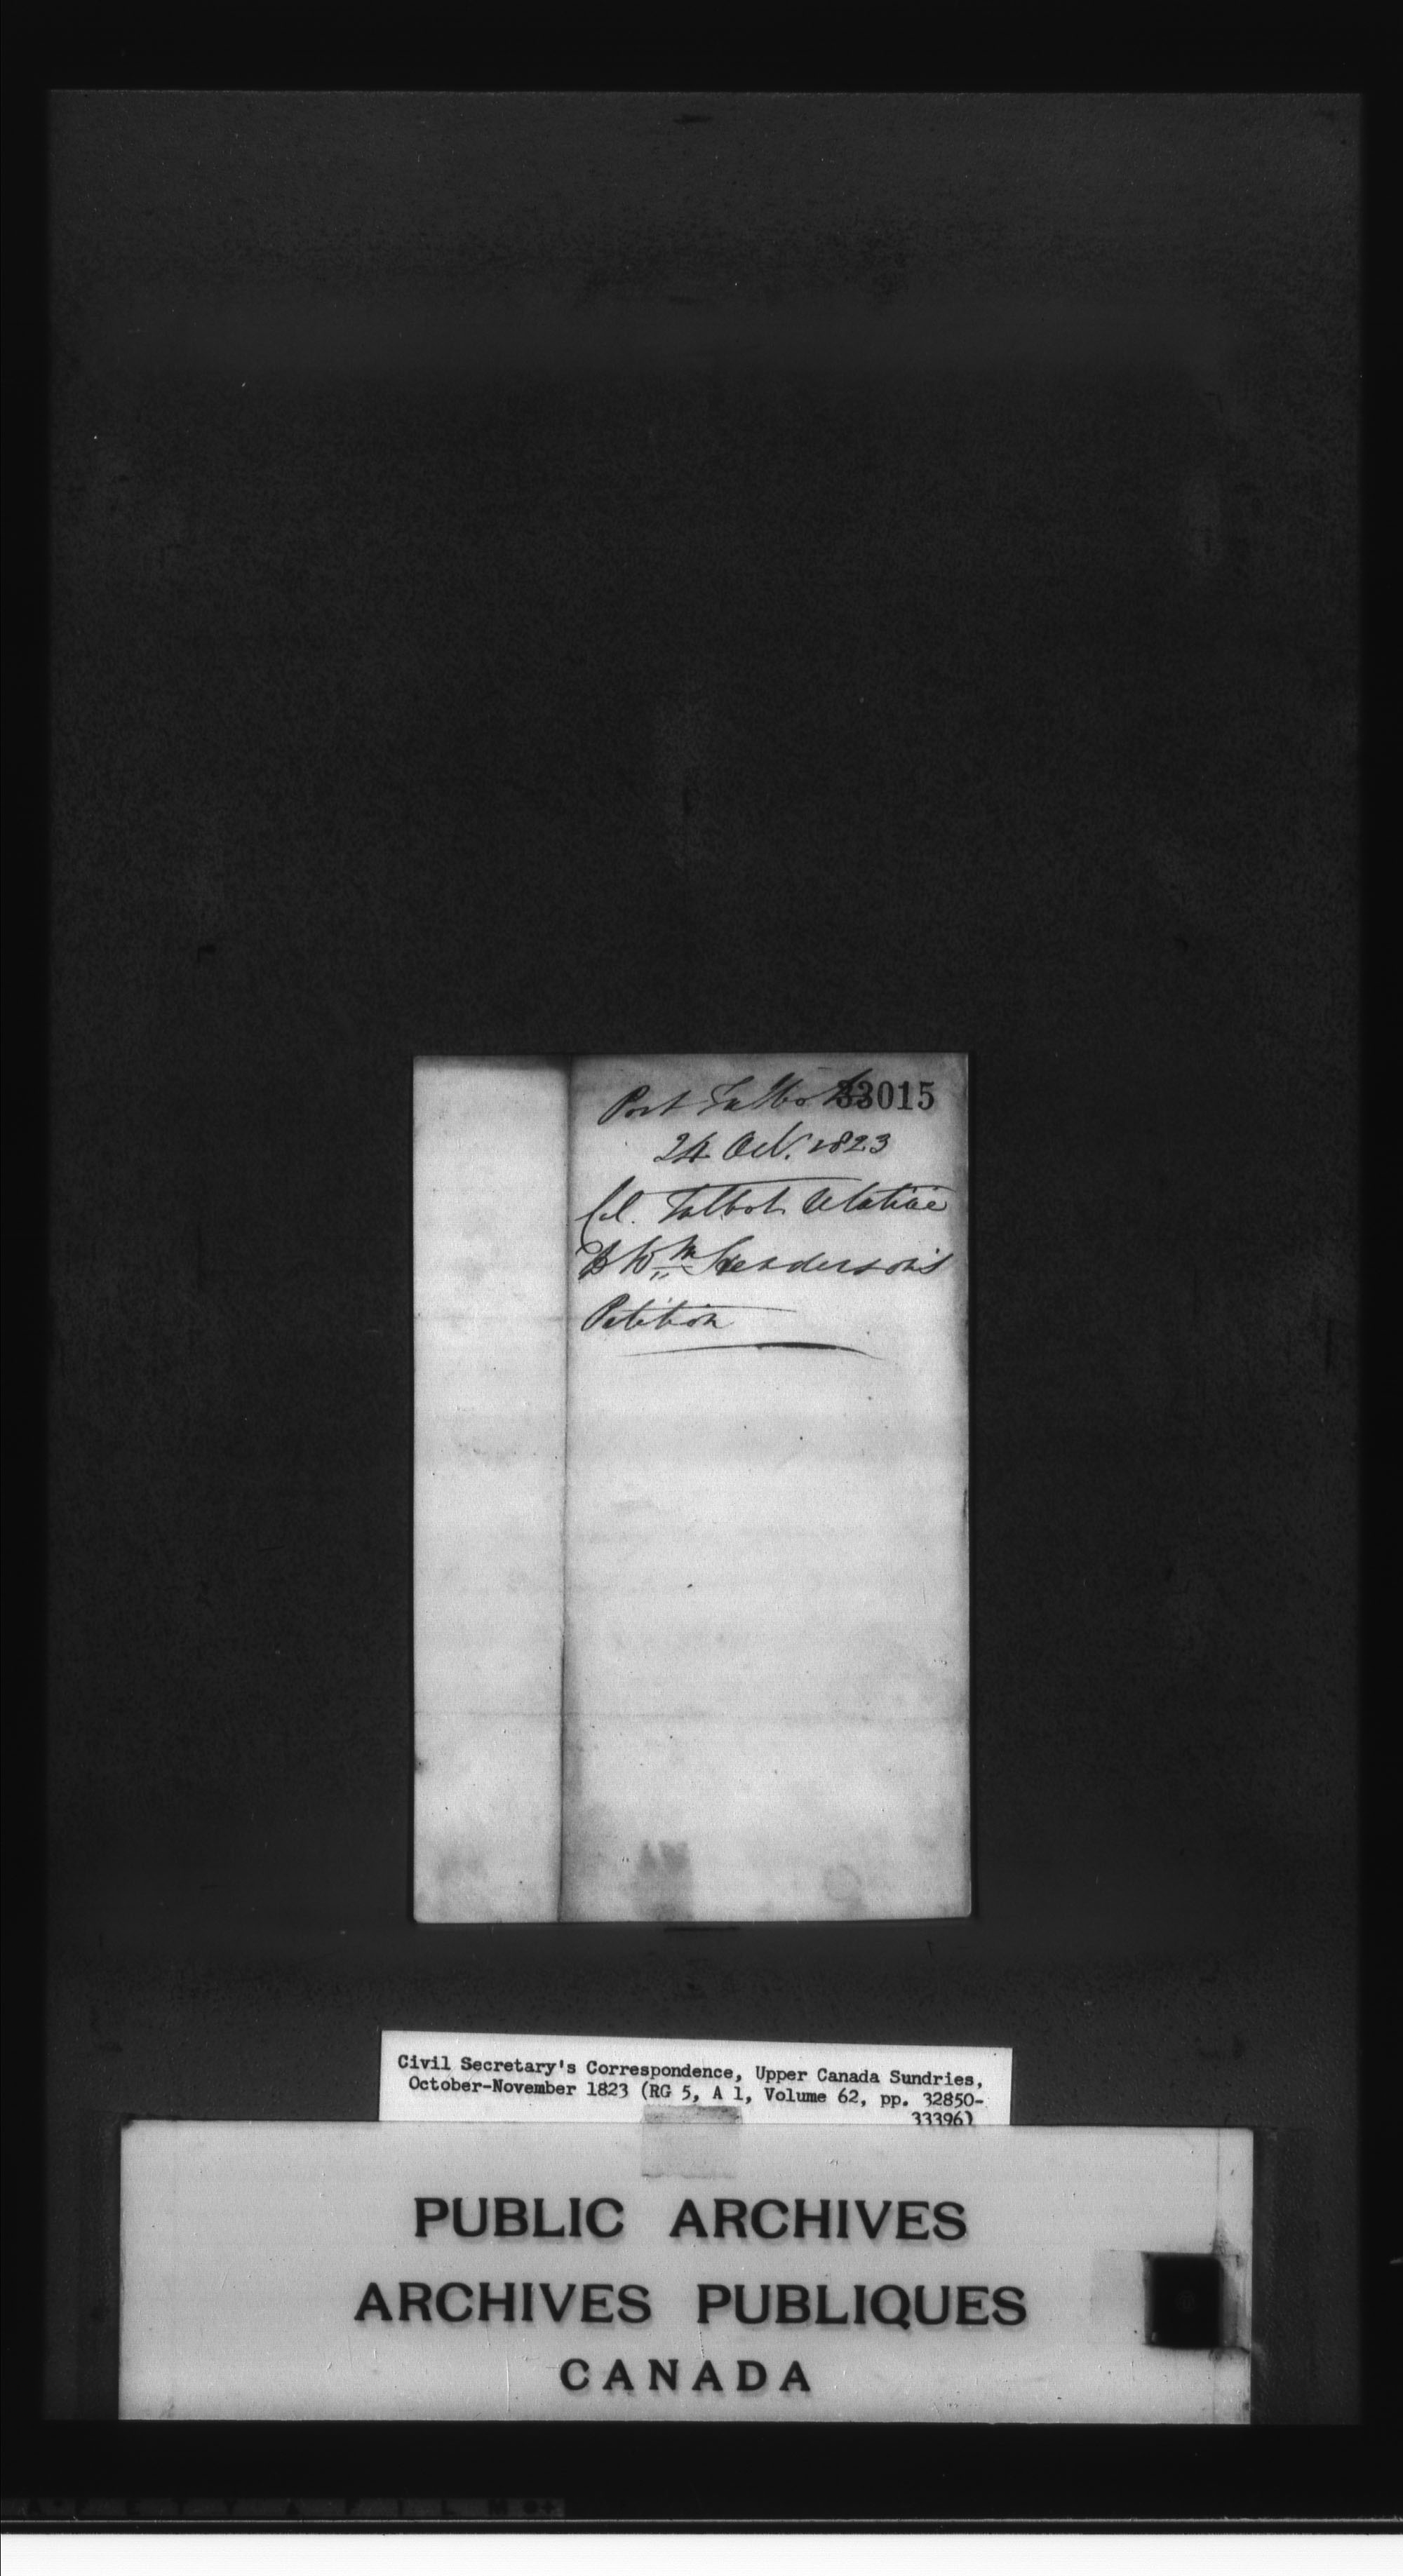 33015
Port Talbot
24 Oct. 1823
Col. Talbot relative
to Wm Henderson's
Petition
Civil Secretary's Correspondence, Upper Canada Sundries,
October-November 1823 (RG 5, A 1, Volume 62, pp. 32850-
33396)
PUBLIC ARCHIVES
ARCHIVES PUBLIQUES
CANADA